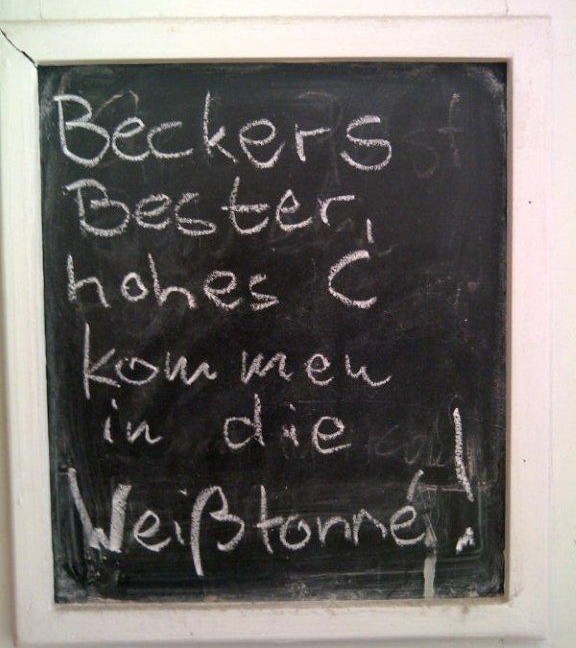 Beckers
Bester,
hohes C
kommen
in die
Weißtonne!